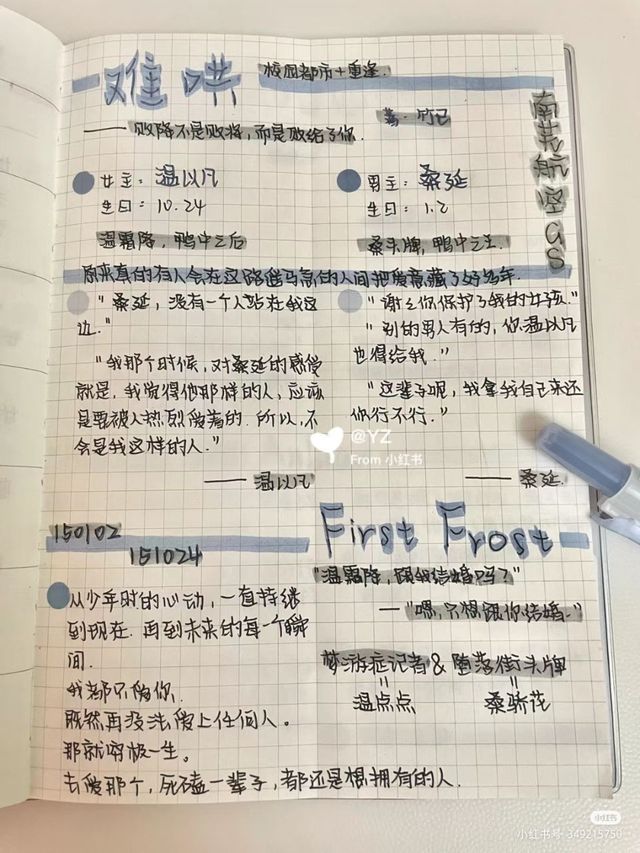 难哄
校园都市+重逢.
著·竹已
——败降不是败将,而是败给了你.
南芜航空GS
女主:温以凡
生日:10.24
温霜降,鸭中之后
男主:桑延
生日:1.2
桑头牌,鸭中之王.
原来真的有人会在这路遥马急的人间把爱意藏了好多年.
"桑延,没有一个人站在我这
边."
"我那个时候,对桑延的感觉
就是,我觉得他那样的人,应该
是要被人热烈爱着的.所以,不
会是我这样的人."
——温以凡
"谢谢你保护了我的女孩."
"别的男人有的,你温以凡
也得给我."
"这辈子呢,我拿我自己来还
你行不行."
——桑延.
@YZ
From 小红书
150102
151024
从少年时的心动,一直持续
到现在.再到未来的每一个瞬
间.
我都只爱你.
既然再没法爱上任何人。
那就穷极一生。
去爱那个,死磕一辈子,都还是想拥有的人.
First Frost
"温霜降,跟我结婚吗?"
—"嗯,只想跟你结婚."
梦游症记者&堕落街头牌
=
=
温点点
桑骄花
小红书
小红书号:349215750